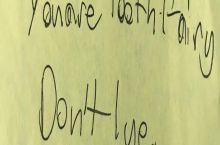 You are Tooth Fairy
Don't lye.